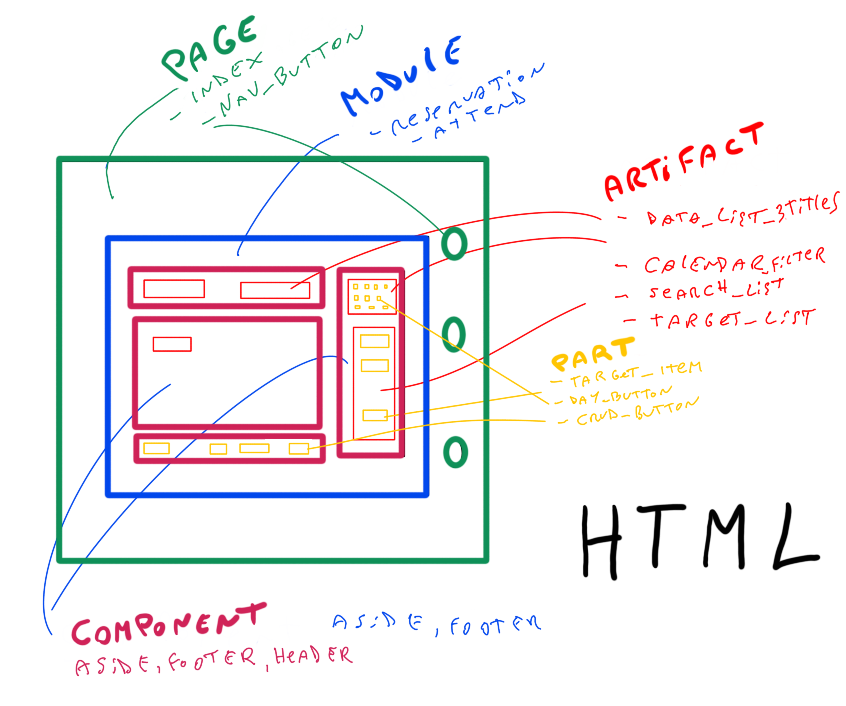 PAGE
- INDEX
- NAV_BUTTON
MODULE
- RESERVATION
- ATTEND
ARTiFACT
- DATA_LIST_3TITLES
- CALENDAR_FILTER
- SEARCH_LIST
- TARGET_LIST
PART
- TARGET_ITEM
- DAY_BUTTON
- CRUD_BUTTON
HTML
COMPONENT
ASIDE, FOOTER, HEADER
ASIDE, FOOTER